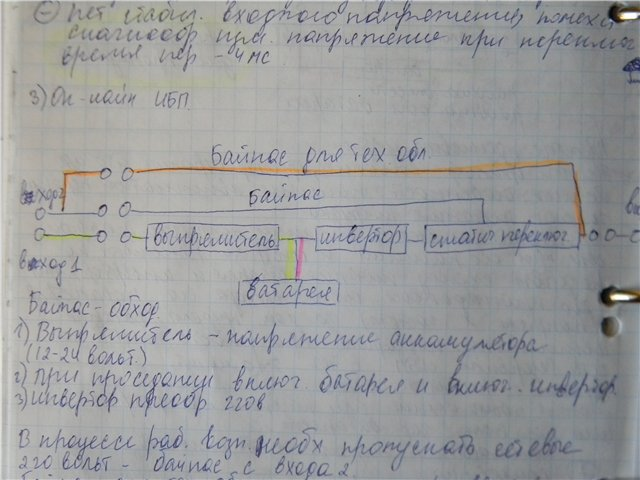 нет стабил. входного напряжения, помехи
синусоидор пит. напряжение при переключ
время пер - 4 мс.
3) Он-лайн ИБП.
Байпас для тех обл.
вход 2
Байпас
выпрямитель
инвертор
статич переключ.
вход 1
батарея
Байпас - обход
1) Выпрямитель - напряжение аккамулятора
(12-24 вольт.)
2) При проседании включ. батарея и включ. инвертор
3) инвертор преобр
В процессе раб. необх пропускать сетевые
220 вольт - байпас с входа 2.